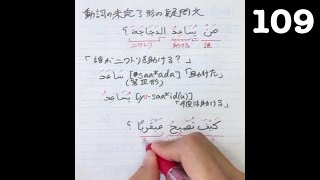 動詞の未完了形の疑問文
109
مَنْ يُسَاعِدُ الدَّجَاجَةَ ؟
ニワトリ 助ける 誰
「誰がニワトリを助ける?」
سَاعَدَ [*saa*ada] 「助けた」
(完了形)
يُسَاعِدُ [yu-saa*id(u)] 「彼は助ける」
كَيْفَ تُصْبِحُ عَبْقَرِيًّا ؟